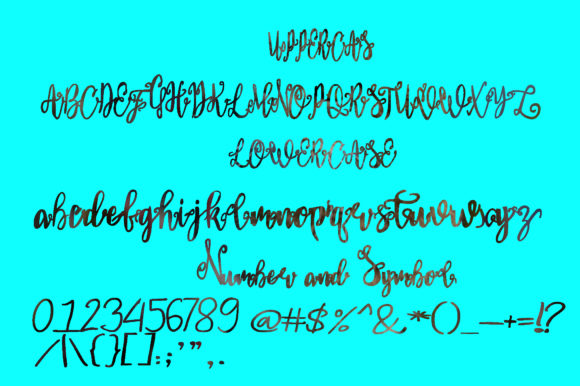 UPPERCAS
ABCDEFGHIJKLMNOPQRSTUVWXYZ
LOWERCASE
abcdefghijklmnopqrstuvwxyz
Number and Symbol
0123456789 @#$%^&*()_—+=!?
/|\{}[]:;'",.